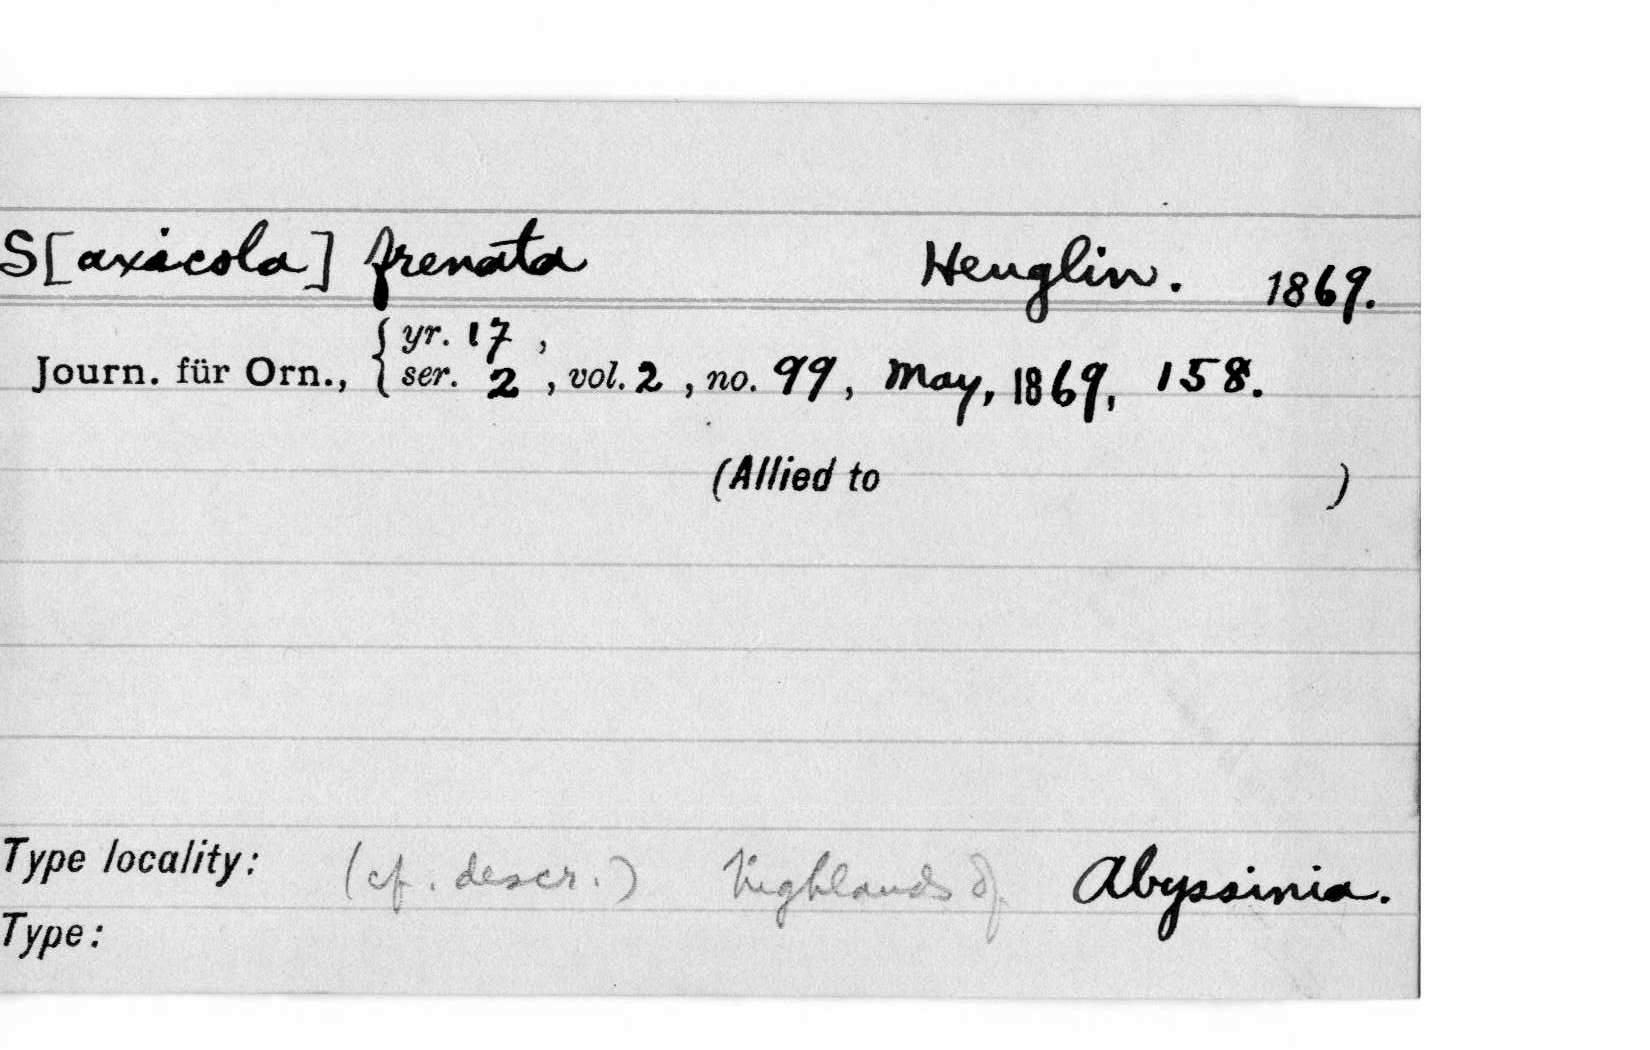 S[axicola] frenata Heuglin. 1869.
yr. 17,
Journ. für Orn., { ser. 2, vol. 2, no. 99, May, 1869, 158.
(Allied to )
Type locality: (cf. descr.) highlands of Abyssinia.
Type: